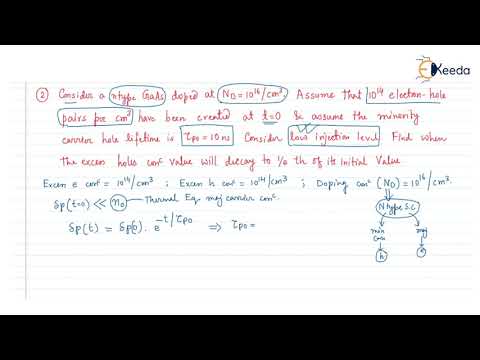 Ekeeda
② Consider a ntype GaAs doped at N_D = 10¹⁶/cm³. Assume that 10¹⁴ electron-hole
pairs per cm³ have been created at t=0 & assume the minority
carrier hole lifetime is τpo = 10 ns Consider low injection level. Find when
the excen holes conⁿ value will decay to 1/e th of its initial value
Excen e⁻ conⁿ = 10¹⁴/cm³ ; Excen h conⁿ = 10¹⁴/cm³ ; Doping conⁿ (N_D) = 10¹⁶/cm³.
δp(t=0) << n₀ → Thermal Eq maj carrier conⁿ.
N type S.C
δp(t) = δp(0). e^-t/τpo ⇒ τpo =
min maj
Carr
h e